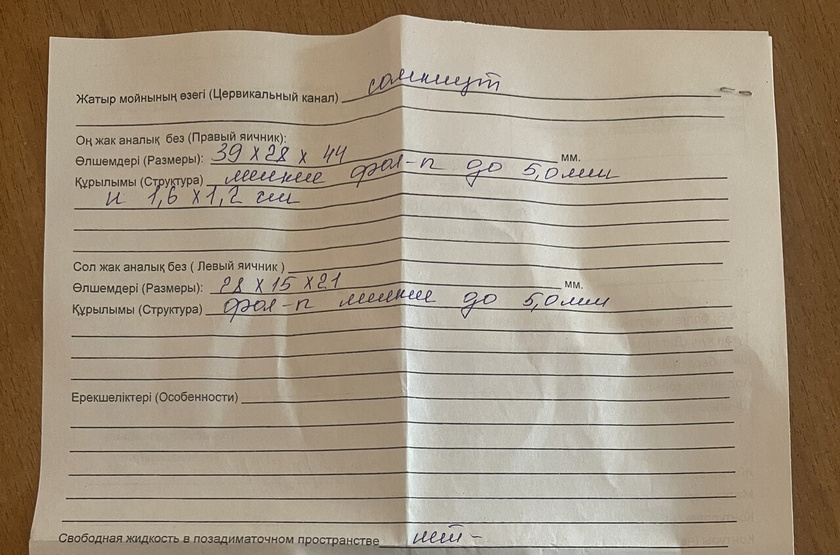 Жатыр мойнының өзегі (Цервикальный канал) сомкнут
Оң жақ аналық без (Правый яичник):
Өлшемдері (Размеры): 39 х 28 х 44 мм.
Құрылымы (Структура) мелкие фол-п до 5,0 мм
и 1,6 х 1,2 см
Сол жак аналық без ( Левый яичник )
Өлшемдері (Размеры): 28 х 15 х 21 мм.
Құрылымы (Структура) фол-п мелкие до 5,0 мм
Ерекшеліктері (Особенности)
Свободная жидкость в позадиматочном пространстве нет -